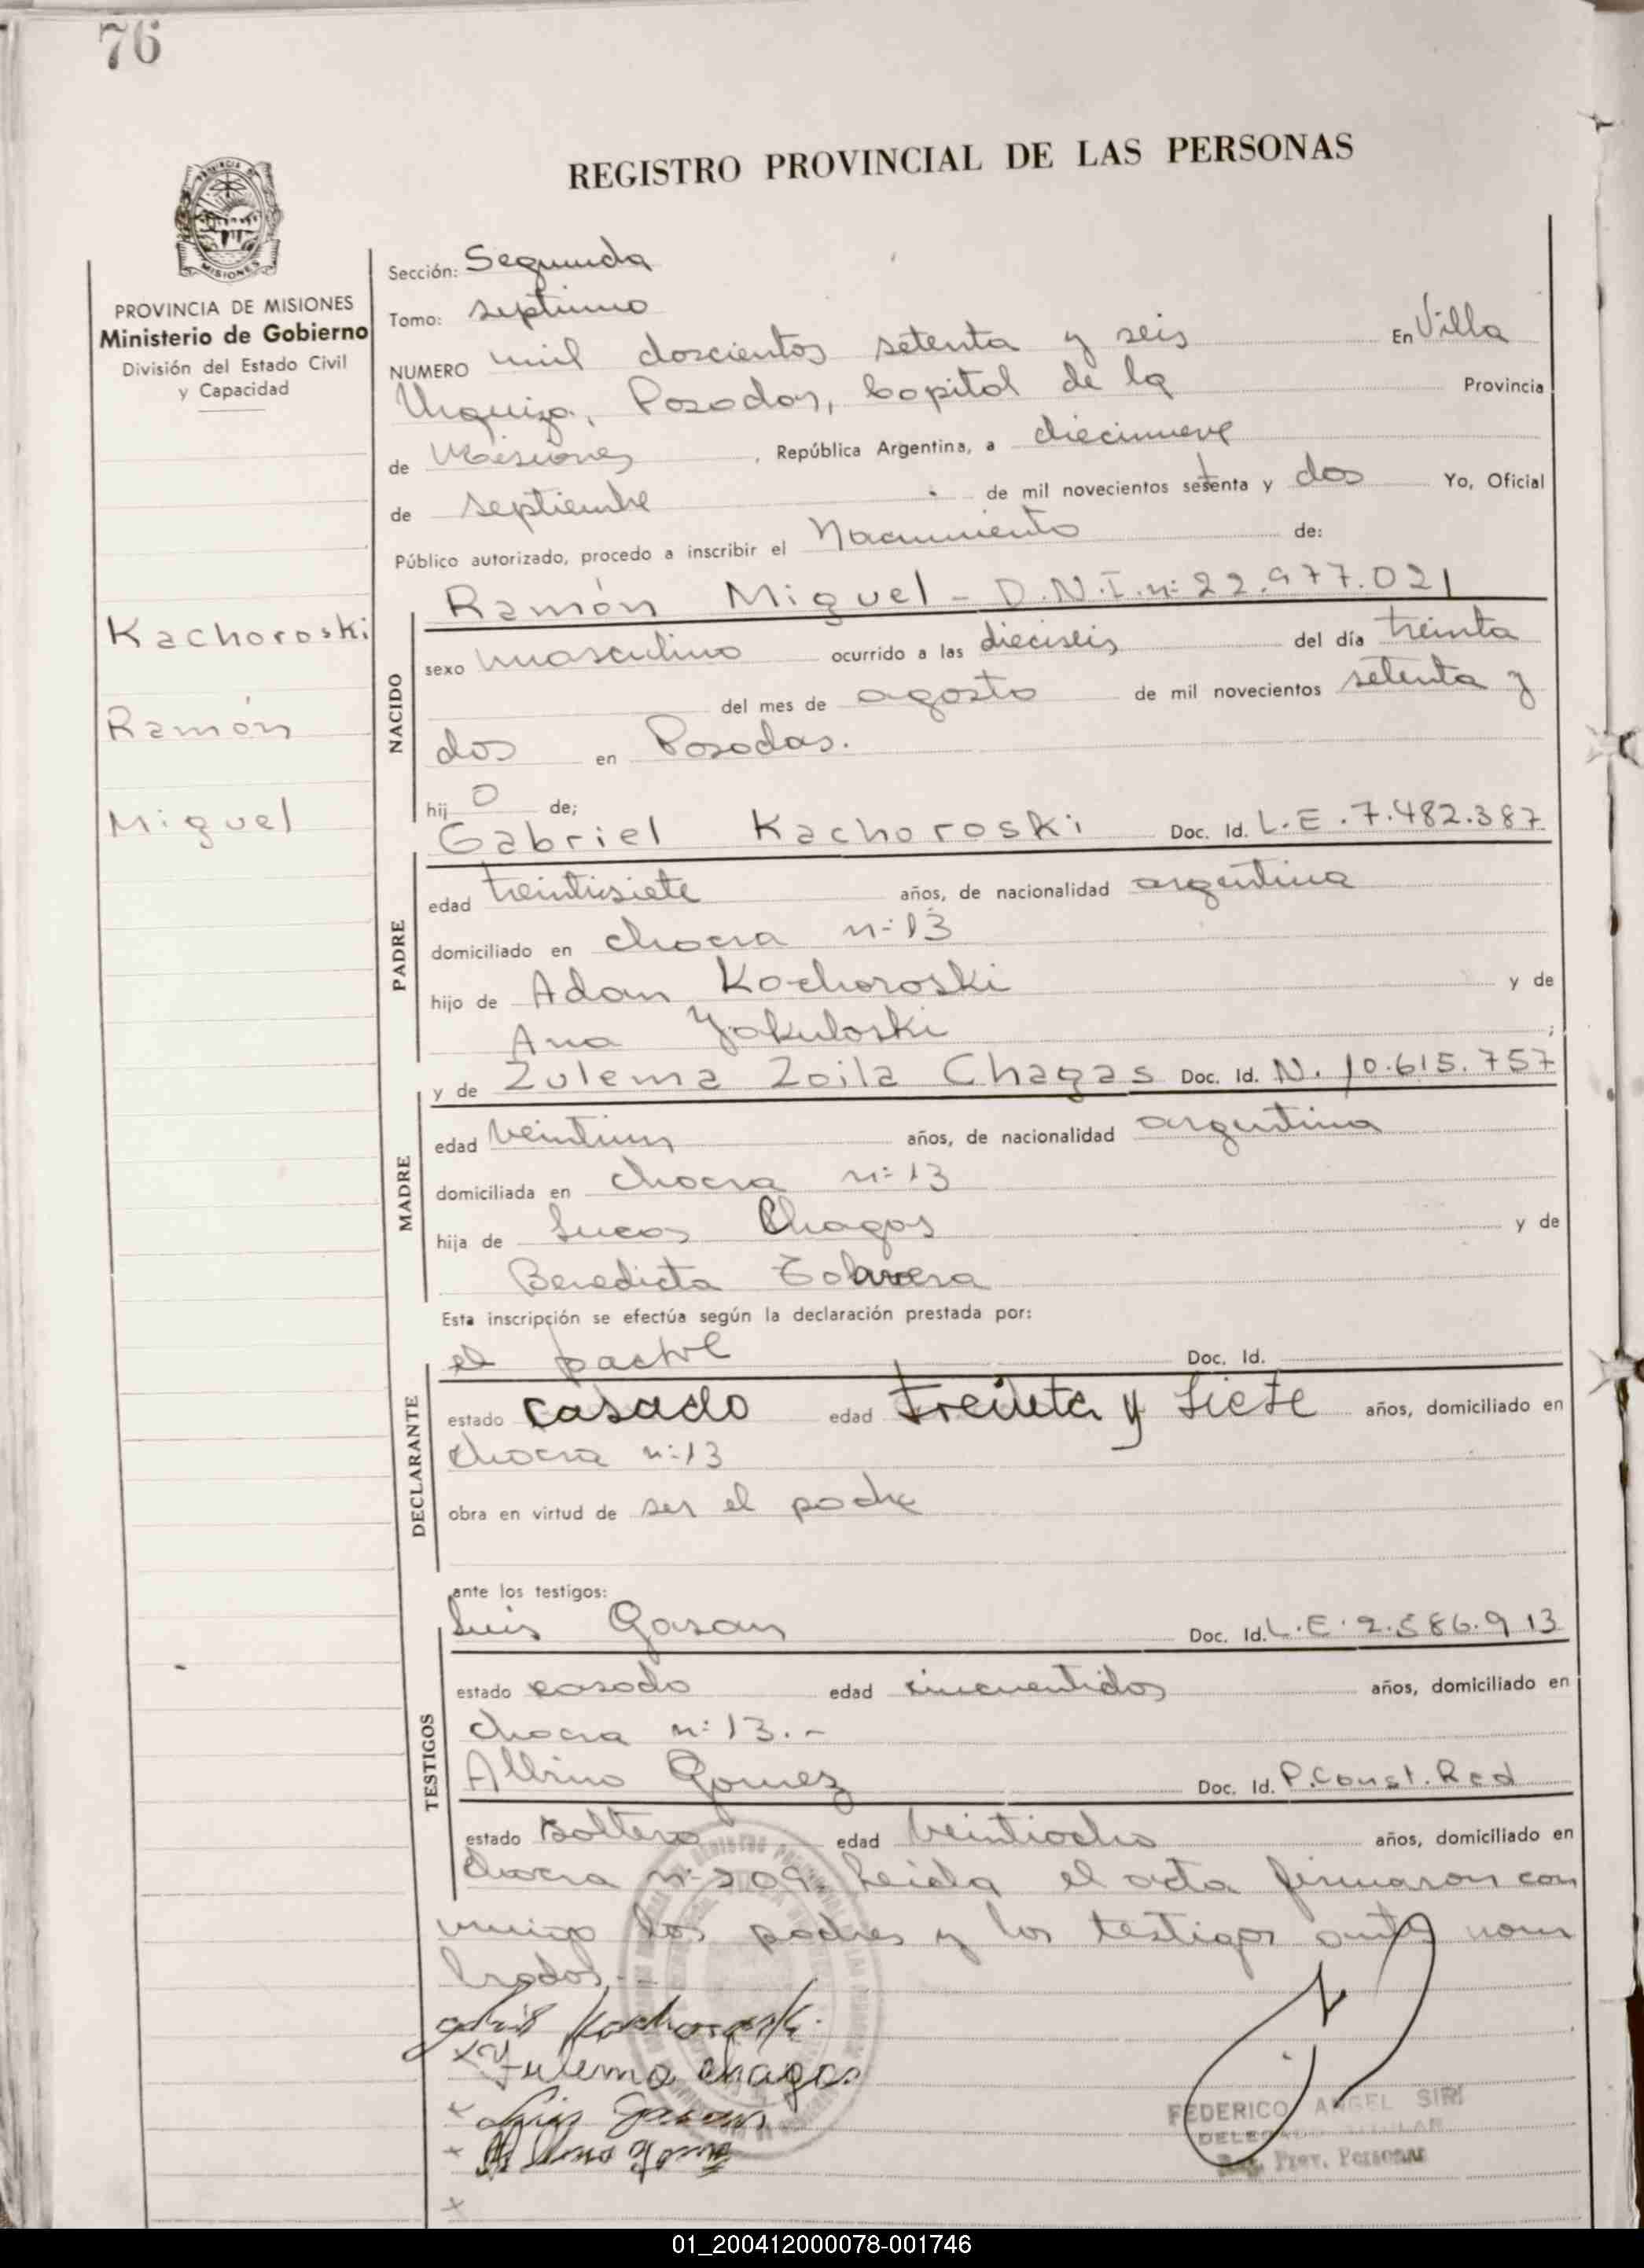 76
REGISTRO PROVINCIAL DE LAS PERSONAS
MISIONES
PROVINCIA DE MISIONES
Ministerio de Gobierno
División del Estado Civil
y Capacidad
Kachoroski
Ramón
Miguel
Sección: Segunda
Tomo: septimo
NUMERO mil doscientos setenta y seis En Villa
Urquiza, Posadas, Capital de la Provincia
de Misiones, República Argentina, a diecinueve
de septiembre de mil novecientos setenta y dos Yo, Oficial
Público autorizado, procedo a inscribir el Nacimiento de:
Ramón Miguel - D.N.I. n: 22.977.021
NACIDO
sexo masculino ocurrido a las dieciseis del día treinta
del mes de agosto de mil novecientos setenta y
dos en Posadas.
hij o de;
Gabriel Kachoroski Doc. Id. L.E. 7.482.387
PADRE
edad treintisiete años, de nacionalidad argentina
domiciliado en chacra n: 13
hijo de Adan Kachoroski y de
Ana Yakuloski ;
y de Zulema Zoila Chagas Doc. Id. N. 10.615.757
MADRE
edad veintiun años, de nacionalidad argentina
domiciliada en chacra n: 13
hija de Lucas Chagas y de
Benedicta
Esta inscripción se efectúa según la declaración prestada por:
el padre Doc. Id.
DECLARANTE
estado casado edad treinta y siete años, domiciliado en
chacra n: 13
obra en virtud de ser el padre
ante los testigos:
Luis Gasan Doc. Id. L.E. 2.586.913
TESTIGOS
estado casado edad cincuentidos años, domiciliado en
chacra n: 13.-
Albino Gomez Doc. Id. P. Const. Red
estado soltero edad veintiocho años, domiciliado en
chacra n: 209. Leida el acta firmaron con
migo los padres y los testigos antes nom
brados.-
Kachoroski
Zulema Chagas
Luis Gasan
Albino Gomez
FEDERICO ANGEL SIRI
DELEGADO TITULAR
Reg. Prov. Personas
01_200412000078-001746